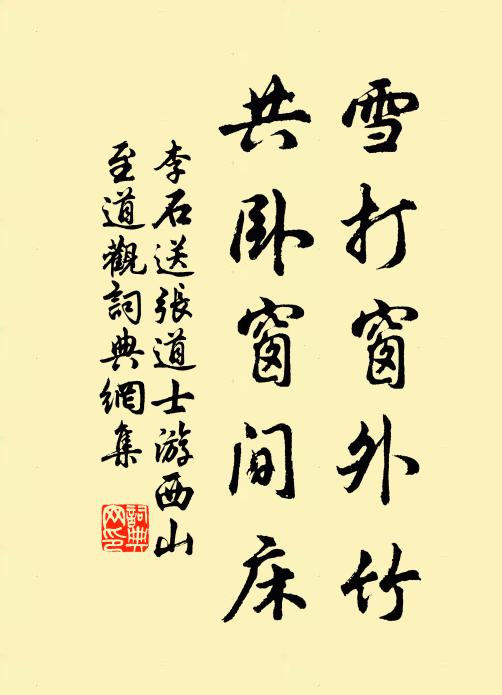 雪打窗外竹
共卧窗间床
李石送張道士游西山
至道觀詞典網集
詞典
网印